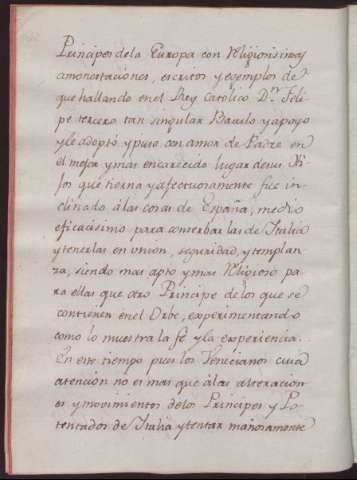 Principes de la Europa con Religiosissimas
amonestaciones, escritos y egemplos de
que hallando en el Rey Catolico D.n Feli-
pe tercero tan singular Baculo y apoyo
y le adoptó y puso con amor de Padre en
el mejor y mas encarecido lugar de sus Hi-
jos que tierna y afectuosamente fue in-
clinado á las cosas de España, medio
eficacisimo para conserbar las de Italia
y tenerlas en union, seguridad, y templan-
za, siendo mas apto y mas Religioso pa-
ra ellas que otro Principe de los que se
contienen en el Orbe, experimentando
como lo muestra la fé y la experiencia.
En este tiempo pues los Venecianos cuia
atencion no es mas que á las alteracion
es y movimientos de los Principes y Po-
tentados de Italia y tentar mañosamente